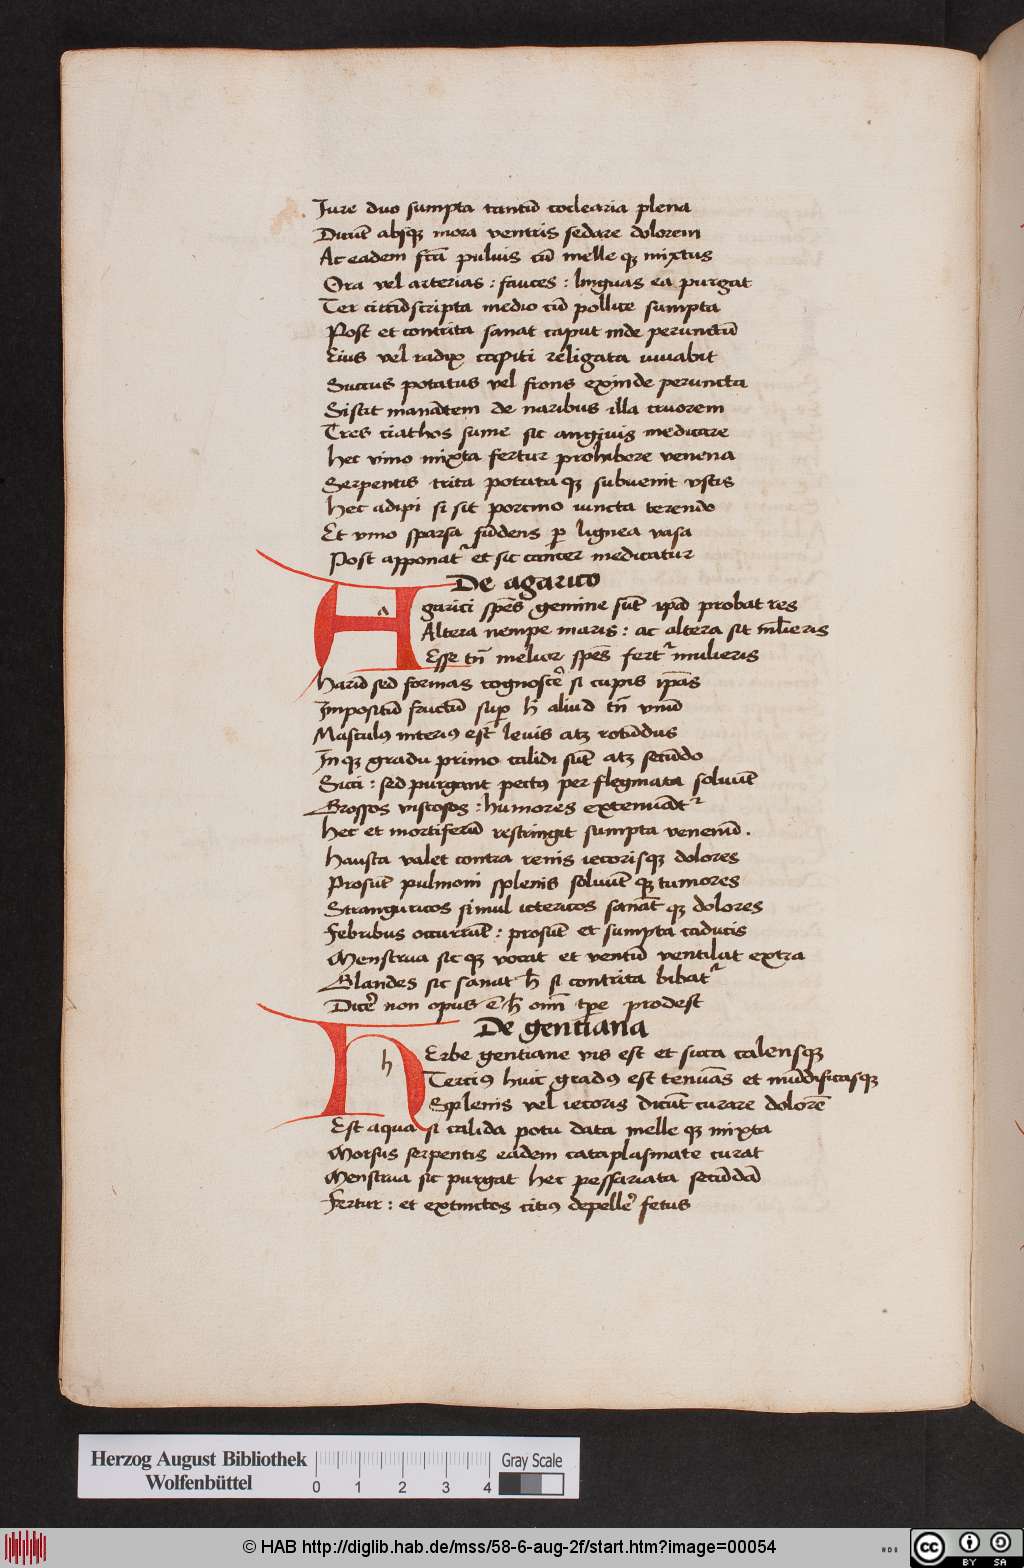 Iure duo sumpta tantū coclearia plena
Dicūt absqꝫ mora ventris sedare dolorem
Ac eadem fcā puluis cū melle qꝫ mixtus
Ora vel arterias : fauces : linguas ea purgat
Ter circūscripta medio cū pollice sumpta
Post et contrita sanat caput inde perunctū
Eius vel radix capiti religata iuuabit
Succus potatus vel frons exinde peruncta
Sistit manātem de naribus illa cruorem
Tres ciathos sume sic anguis medicare
Hec vino mixta fertur prohibere venena
Serpentis trita potata qꝫ subuenit vstis
Hec adipi si sit porcino iuncta terendo
Et vino sparsa fūdens ꝑ lignea vasa
Post apponat᷑ et sic cancer medicatur
De agarico
A a garici spēs gemine sūt ipā probat res
Altera nempe maris : ac altera sit ml̄ieris
Esse tn̄ melior spēs fert᷑ mulieris
Harū sed formas cognosce᷑ si cupis ipās
Impositū fructū suꝑ h̄ aliud tn̄ vnū
Masculꝰ interiꝰ est leuis atqꝫ rotūdus
In qꝫ gradu primo calidi sūt atqꝫ secūdo
Sicci : sed purgant pectꝰ per flegmata soluūt
Grossos viscosos : humores extenuādt᷑
Hec et mortiferū restringit sumpta venenū .
Hausta valet contra renis iecorisqꝫ dolores
Prosūt pulmoni splenis soluūt qꝫ tumores
Stranguricos simul ictericos sanāt qꝫ dolores
Febribus occurrūt : prosūt et sumpta caducis
Menstrua sic qꝫ vocat et ventū ventilat extra
Glandes sic sanat h̄ si contrita bibat᷑
Dice᷑ non opus ē h̄ om̄i tꝑe prodest
De gentiana
H h Erbe gentiane vis est et sicca calensqꝫ
Terciꝰ huic gradꝰ est tenuās et mūdificasqꝫ
Splenis vel iecoris dicūt curare dolorē
Est aqua si calida potu data melle qꝫ mixta
Morsus serpentis eadem cataplasmate curat
Menstrua sic purgat hec pessariata secūdā
Fertur : et extinctos citiꝰ depelle᷑ fetus
Herzog August Bibliothek
Wolfenbüttel
0 1 2 3 4
Gray Scale
© HAB http://diglib.hab.de/mss/58-6-aug-2f/start.htm?image=00054
cc BY SA